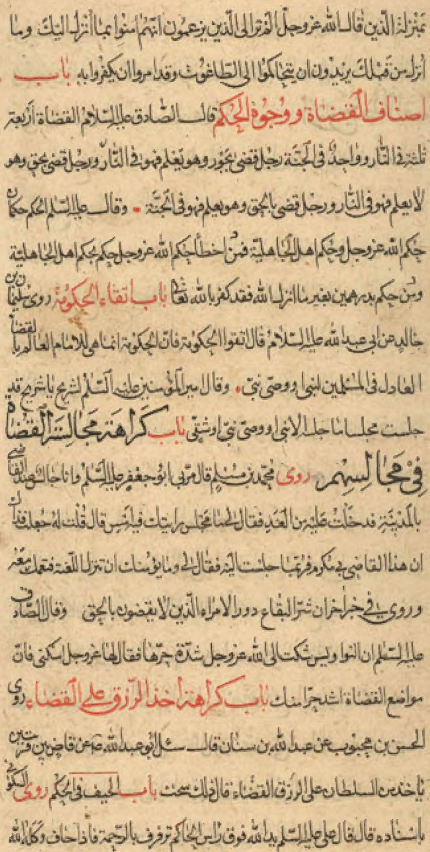 بمنزلة الذين قال الله عز وجل الم تر الى الذين يزعمون انهم امنوا بما انزل اليك وما
انزل من قبلك يريدون ان يتحاكموا الى الطاغوت وقد امروا ان يكفروا به باب
اصناف القضاة ووجوه الحكم قال الصادق عليه السلام القضاة اربعة
ثلثة في النار وواحد في الجنة رجل قضى بجور وهو يعلم فهو في النار ورجل قضى بحق وهو
لا يعلم فهو في النار ورجل قضى بالحق وهو يعلم فهو في الجنة وقال عليه السلم الحكم حكمان
حكم الله عز وجل وحكم اهل الجاهلية فمن اخطأ حكم الله عز وجل حكم بحكم اهل الجاهلية
ومن حكم بدرهمين بغير ما انزل الله فقد كفر بالله تعالى باب اتقاء الحكومة روى سليمان بن
خالد عن ابي عبد الله عليه السلام قال اتقوا الحكومة فان الحكومة انما هي للامام العالم بالقضاء
العادل في المسلمين لنبي او وصي نبي وقال امير المؤمنين عليه السلم لشريح يا شريح قد
جلست مجلسا ما جلسه الا نبي او وصي نبي او شقي باب كراهة مجالسة القضاة
في مجالسهم روى محمد بن مسلم قال مر بي ابو جعفر عليه السلم وانا جالس عند القاضي
بالمدينة فدخلت عليه من الغد فقال لي ما مجلس رايتك فيه امس قال قلت له جعلت فداك
ان هذا القاضي لي مكرم فربما جلست اليه فقال لي وما يؤمنك ان تنزل اللعنة فتعمك معه
وروى في خبر اخر ان شر البقاع دور الامراء الذين لا يقضون بالحق وقال الصادق
عليه السلم ان النواويس شكت الى الله عز وجل شدة حرها فقال لها عز وجل اسكني فان
مواضع القضاة اشد حرا منك باب كراهة اخذ الرزق على القضاء روى
الحسن بن محبوب عن عبد الله بن سنان قال سئل ابو عبد الله عن قاض بين قريتين
ياخذ من السلطان على القضاء الرزق قال ذلك سحت باب الحيف في الحكم روى السكوني
باسناده قال قال علي عليه السلم يد الله فوق راس الحاكم ترفرف بالرحمة فاذا حاف وكله الله